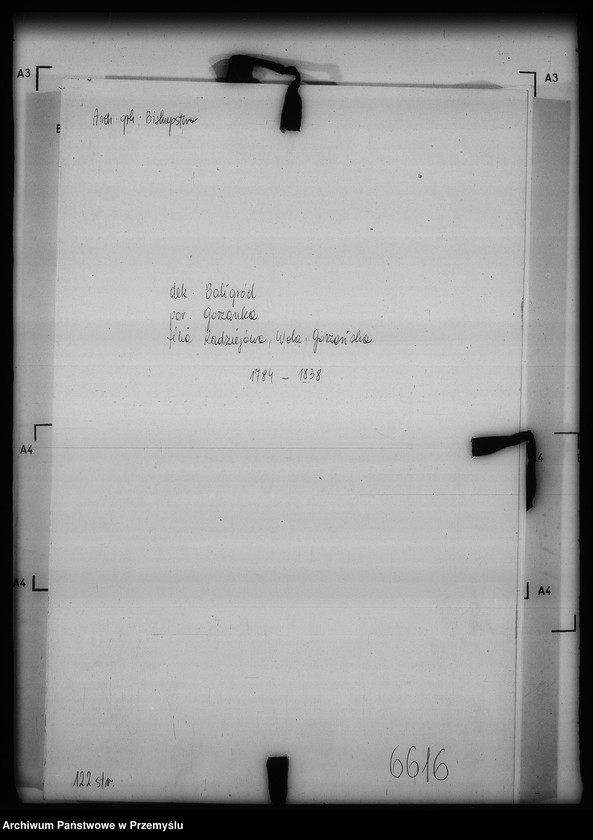 A3
A3
Arch. grk. Biskupstwo
dek. Baligród
par. Gorzanka
filia Radziejowa, Wola Gorzańska
1784 – 1838
A4
4
A4
A4
122 str.
6616
Archiwum Państwowe w Przemyślu